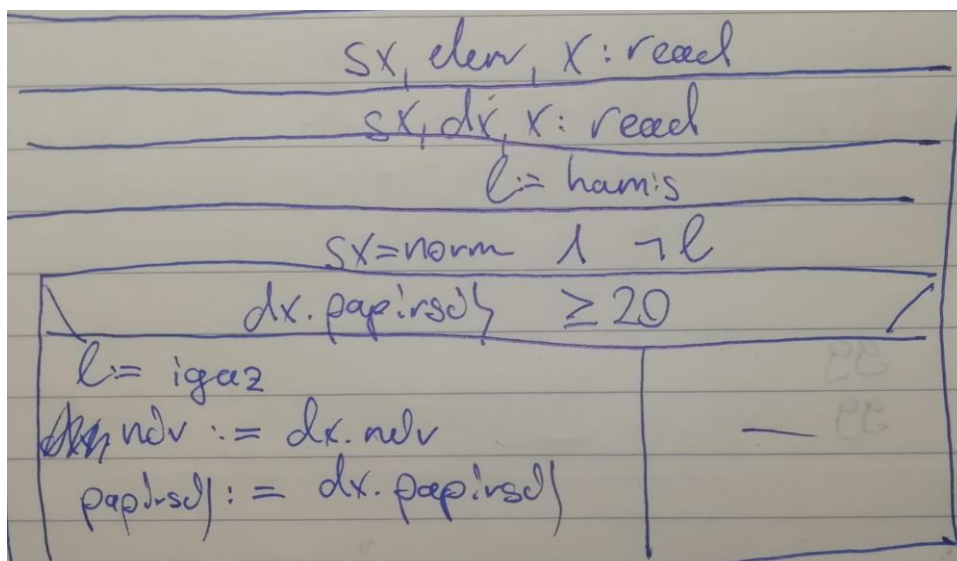 sx, elem, x: read
sx, dx, x: read
l:= hamis
sx=norm ∧ ¬l
dx.papírsúly ≥ 20
l:= igaz
név := dx.név
—
papírsúly := dx.papírsúly